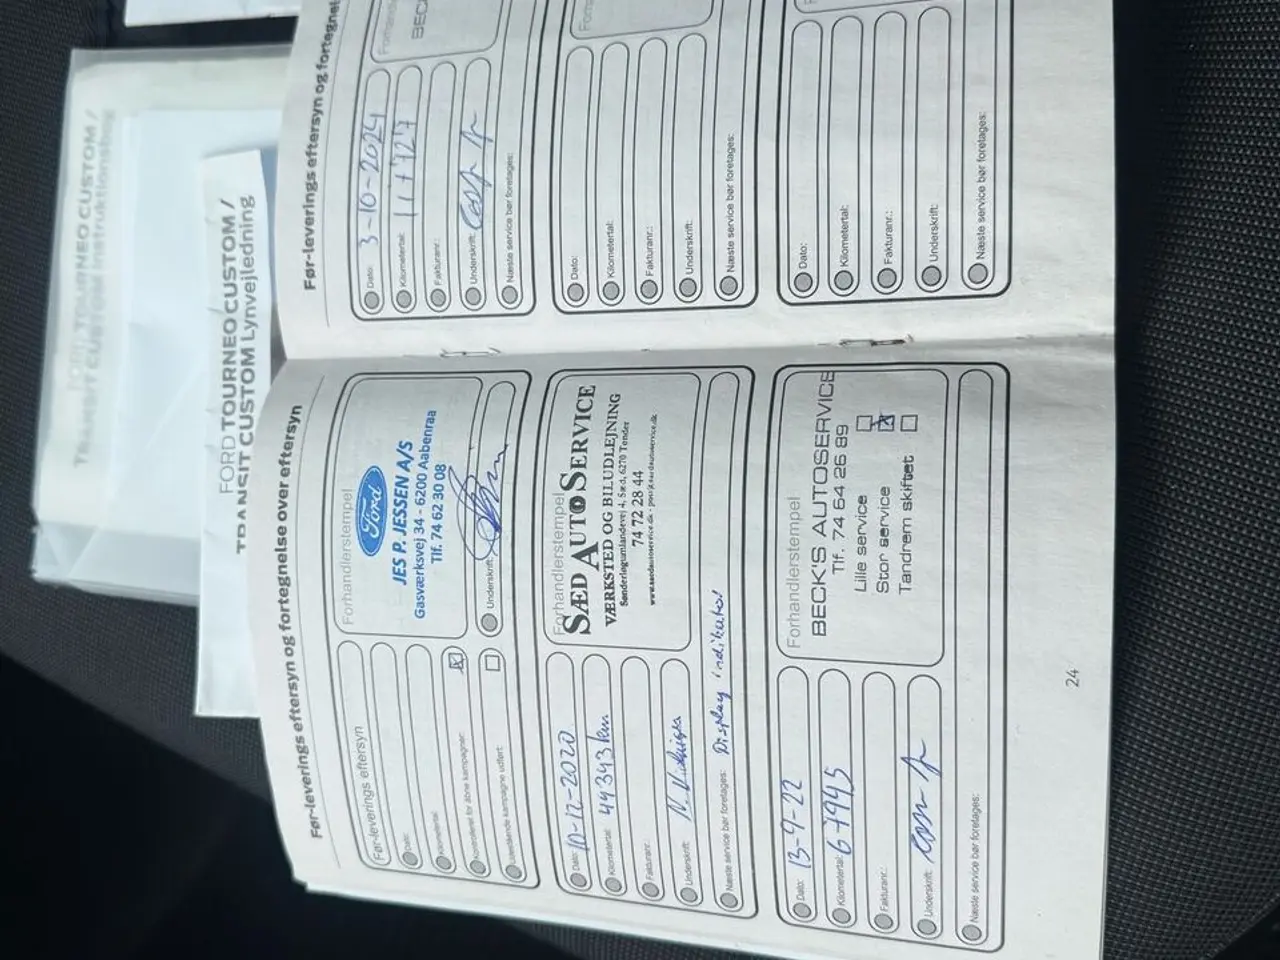 FORD TOURNEO CUSTOM /
TRANSIT CUSTOM Instruktionsbog
FORD TOURNEO CUSTOM /
TRANSIT CUSTOM Lynvejledning
Før-leverings eftersyn og fortegnelse over eftersyn
Før-leverings eftersyn
Dato:
Kilometertal:
Kontrolleret for åbne kampagner:
Udestående kampagne udført:
Forhandlerstempel
Ford
JES P. JESSEN A/S
Gasværksvej 34 - 6200 Aabenraa
Tlf. 74 62 30 08
Underskrift:
Dato: 10-12-2020
Kilometertal: 44343 km
Fakturanr.:
Underskrift:
Næste service bør foretages: Display indikator
Forhandlerstempel
SÆD AUTOSERVICE
VÆRKSTED OG BILUDLEJNING
Sønderlogumlandevej 4, Sæd, 6270 Tønder
74 72 28 44
www.saedautoservice.dk - post@saedautoservice.dk
Dato: 13-9-22
Kilometertal: 67945
Fakturanr.:
Underskrift:
Næste service bør foretages:
Forhandlerstempel
BECK'S AUTOSERVICE
Tlf. 74 64 26 89
Lille service
Stor service
Tandrem skiftet
24
Før-leverings eftersyn og fortegnel
Dato: 3-10-2024
Kilometertal: 111727
Fakturanr.:
Underskrift:
Næste service bør foretages:
BECK
Dato:
Kilometertal:
Fakturanr.:
Underskrift:
Næste service bør foretages:
Dato:
Kilometertal:
Fakturanr.:
Underskrift:
Næste service bør foretages: